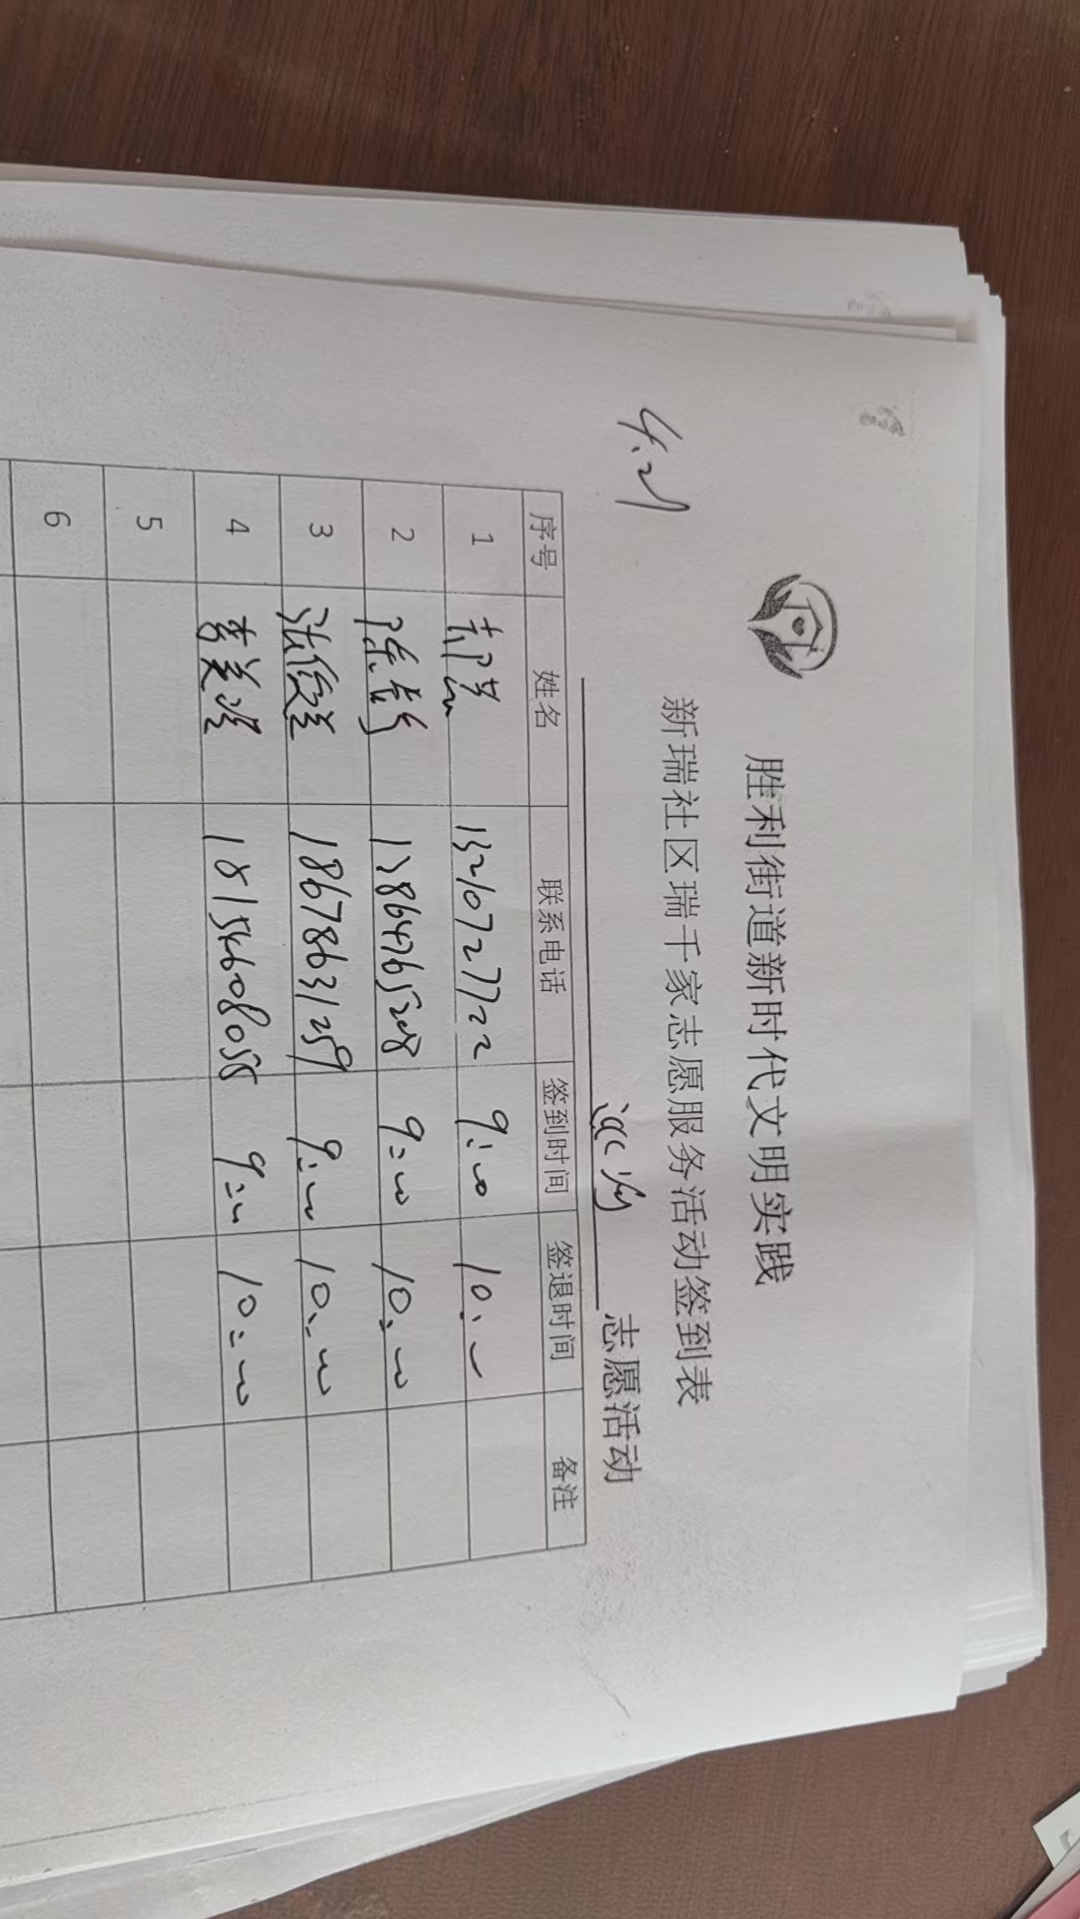 4.21
胜利街道新时代文明实践
新瑞社区瑞千家志愿服务活动签到表
志愿活动
序号 姓名 联系电话 签到时间 签退时间 备注
1 13210727722 9:00 10:00
2 陈 13864765208 9:00 10:00
3 张俊兰 18678631259 9:00 10:00
4 李美玲 18154608055 9:00 10:00
5
6